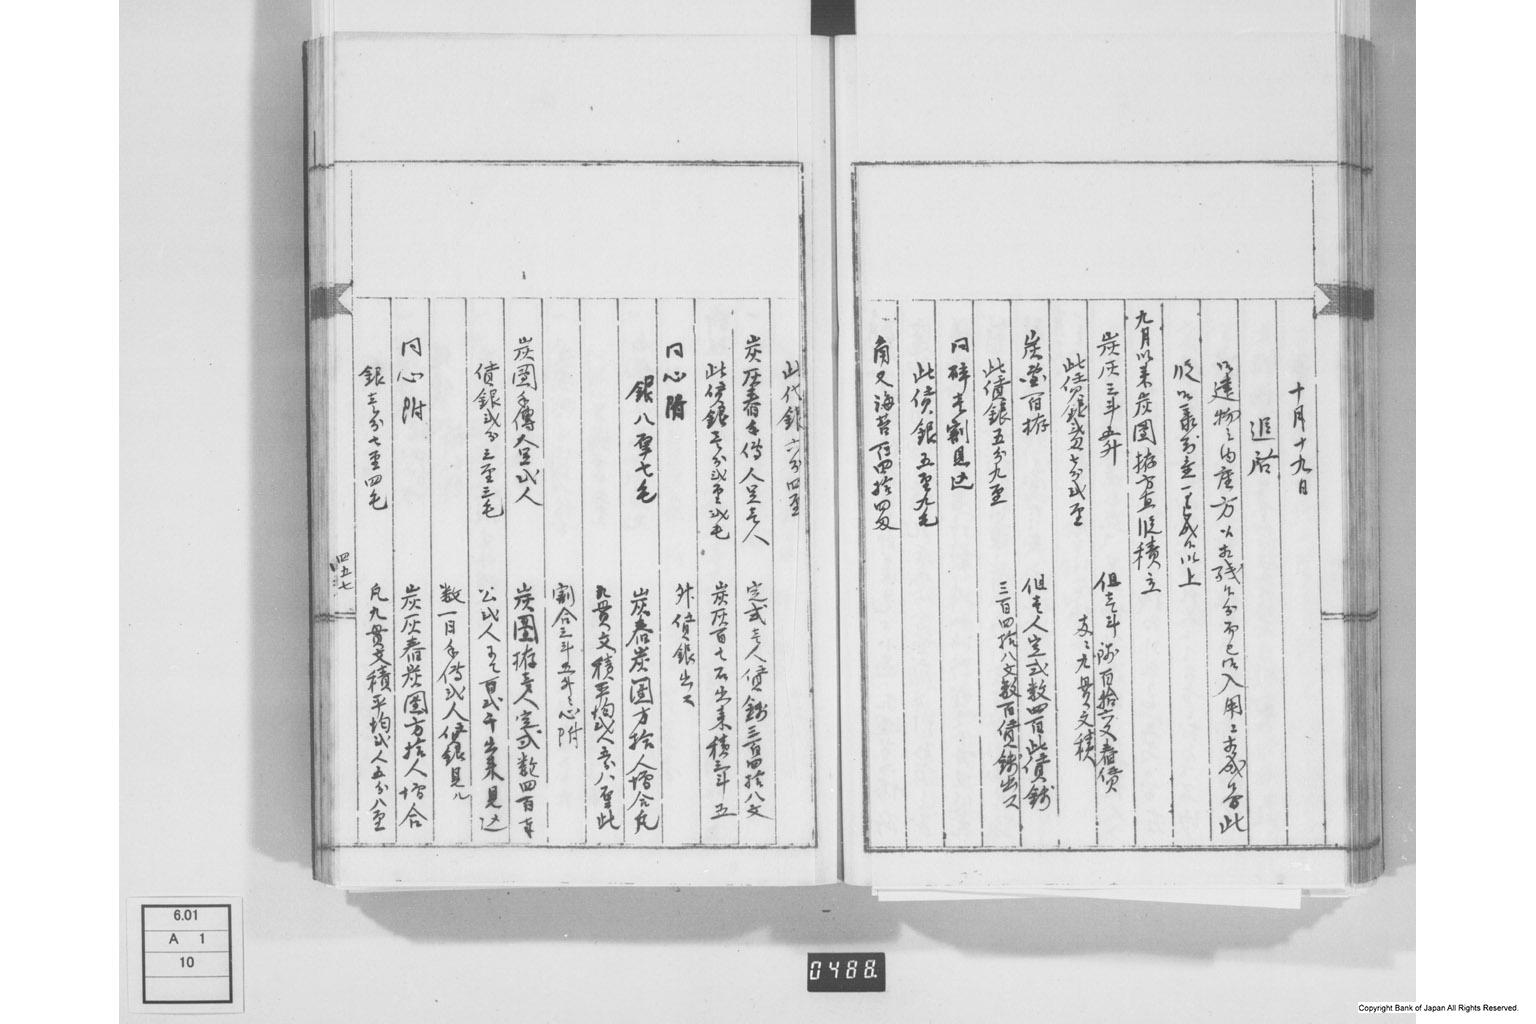 十月十九日
追啓
以遣物之内座方以相残候分而已御入用
九月以来炭團拵方真似積立
炭灰三斗五升
但壱斗 百拾六文春賃
文之九貫文積
此賃銀弐匁七分弐厘
炭團百拵
但壱人定式数四百此賃銭
三百四拾八文数百賃銭出ス
此賃銀五分九厘
同砕キ割見込
此賃銀五厘九毛
角又海苔百四拾四匁
此代銀六分四厘
炭灰舂手傳人足壱人
定式壱人賃銭三百四拾八文
此賃銀壱分弐厘弐毛
炭灰百七石出来積三斗五
外賃銀出ス
同心附
銀八厘七毛
炭舂炭團方拾人増合凡
九貫文積平均弐人五分八厘此
割合三斗五升之心附
炭團手傳人足弐人
炭團拵壱人定式数四百
公弐人ニて百弐十出来見込
賃銀弐分三厘三毛
数一日手傳弐人賃銀見ル
同心附
炭灰舂炭團方拾人増合
銀壱分七厘四毛
凡九貫文積平均弐人五分八厘
四五七
6.01
A 1
10
0488.
Copyright Bank of Japan All Rights Reserved.